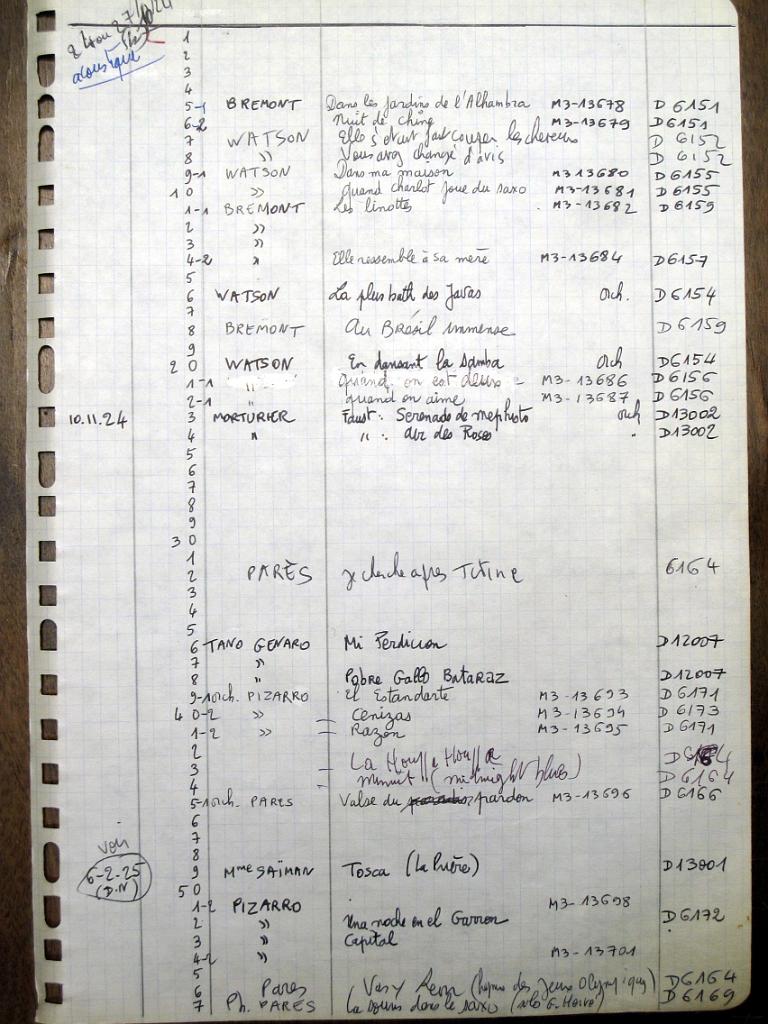 acoustique
1
2
3
4
5-1 BREMONT Dans les jardins de l'Alhambra M3-13678 D 6151
6-2 Nuit de chine M3-13679 D 6151
7 WATSON Elle s'était fait couper les cheveux D 6152
8 " Vous avez changé d'avis D 6152
9-1 WATSON Dans ma maison M3-13680 D 6155
10 " quand charlot joue du saxo M3-13681 D 6155
1-1 BREMONT Les linottes . M3-13682 D 6159
2 "
3 "
4-2 " Elle ressemble à sa mère M3-13684 D 6157
5
6 WATSON La plus bath des Javas orch. D 6154
7
8 BREMONT Au Brésil immense D 6159
9
20 WATSON En dansant la samba orch D6154
1-1 " Quand on est deux = M3-13686 D6156
2-1 quand on aime M3-13687 D 6156
10.11.24 3 MORTURIER Faust: Serenade de mephisto orch D13002
4 " " : air des Roses " D13002
5
6
7
8
9
30
1
2 PARÈS Je cherche apres Titine 6164
3
4
5
6 TANO GENARO Mi Perdicion D12007
7 "
8 " Pobre Gallo BATARAZ D12007
9-1 orch. PIZARRO El Estandarte M3-13693 D 6171
40-2 " Cenizas M3-13694 D 6173
1-2 " = Razon M3-13695 D 6171
2
3 = La Houppa Houppa D6164
4 = minuit (midnight blues) D 6164
5-1 orch. PARES Valse du pardon M3-13696 D 6166
6
7
8
voir
6-2-25 (D.N) 9 Mme SAÏMAN Tosca (La Prière) D13001
50
1-2 PIZARRO . M3-13698
2 " Una noche en el Garron D 6172
3 " Capital
4-2 " M3-13701
5
6 Pares Vas y (hymne des Jeux Olympiques) D6164
7 Ph. PARES La souris dans le saxo D 6169